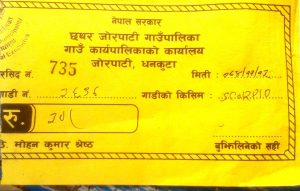 नेपाल सरकार
छथर जोरपाटी गाउँपालिका
गाउँ कार्यपालिकाको कार्यालय
जोरपाटी, धनकुटा
रसिद नं. 735 मिती :
गाडी नं. २६९६ गाडीको किसिम : SCORPIO
रु.
उ. मोहन कुमार श्रेष्ठ बुझिलिनेको सही